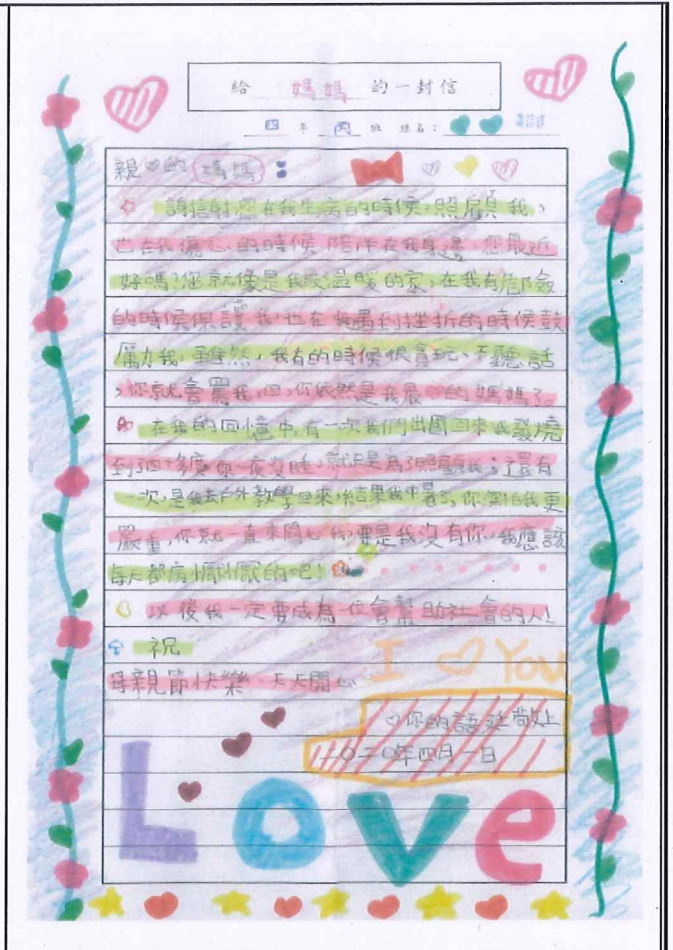 給 媽媽 的一封信
四 年 丙 班 姓名：
親♡的媽媽：
謝謝您在我生病的時候，照顧我，
也在我傷心的時候陪伴在我身邊，您最近
好嗎？您就像是我溫暖的家，在我有危險
的時候保護我，也在我遇到挫折的時候鼓
勵我，雖然，我有的時候很貪玩、不聽話
，你就會罵我，但，你依然是我最♡的媽媽了。
在我的回憶中，有一次我們出國回來我發燒
到了四十多度你一夜沒睡，就只是為了照顧我；還有
一次，是我去戶外教學回來，結果我中暑了，你害怕我更
嚴重，你就一直來關心我，要是我沒有你，我應該
每天都病懨懨的吧！
以後我一定要成為一位會幫助社會的人！
祝
母親節快樂、天天開心
I ♡ You
♡你的語 敬上
一〇二〇年四月一日
Love